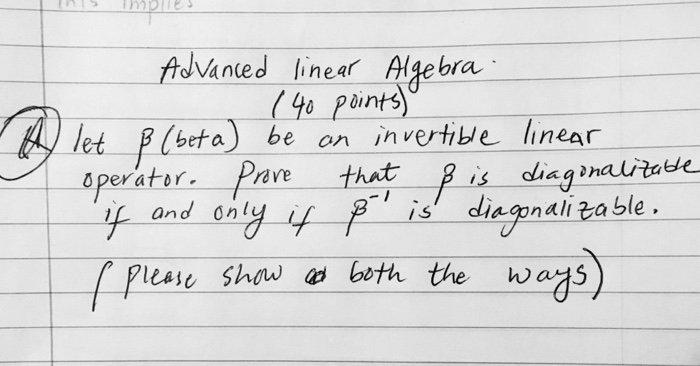 This implies
Advanced linear Algebra.
(40 points)
A) let β (beta) be an invertible linear
operator. Prove that β is diagonalizable
if and only if β⁻¹ is diagonalizable.
(please show both the ways)